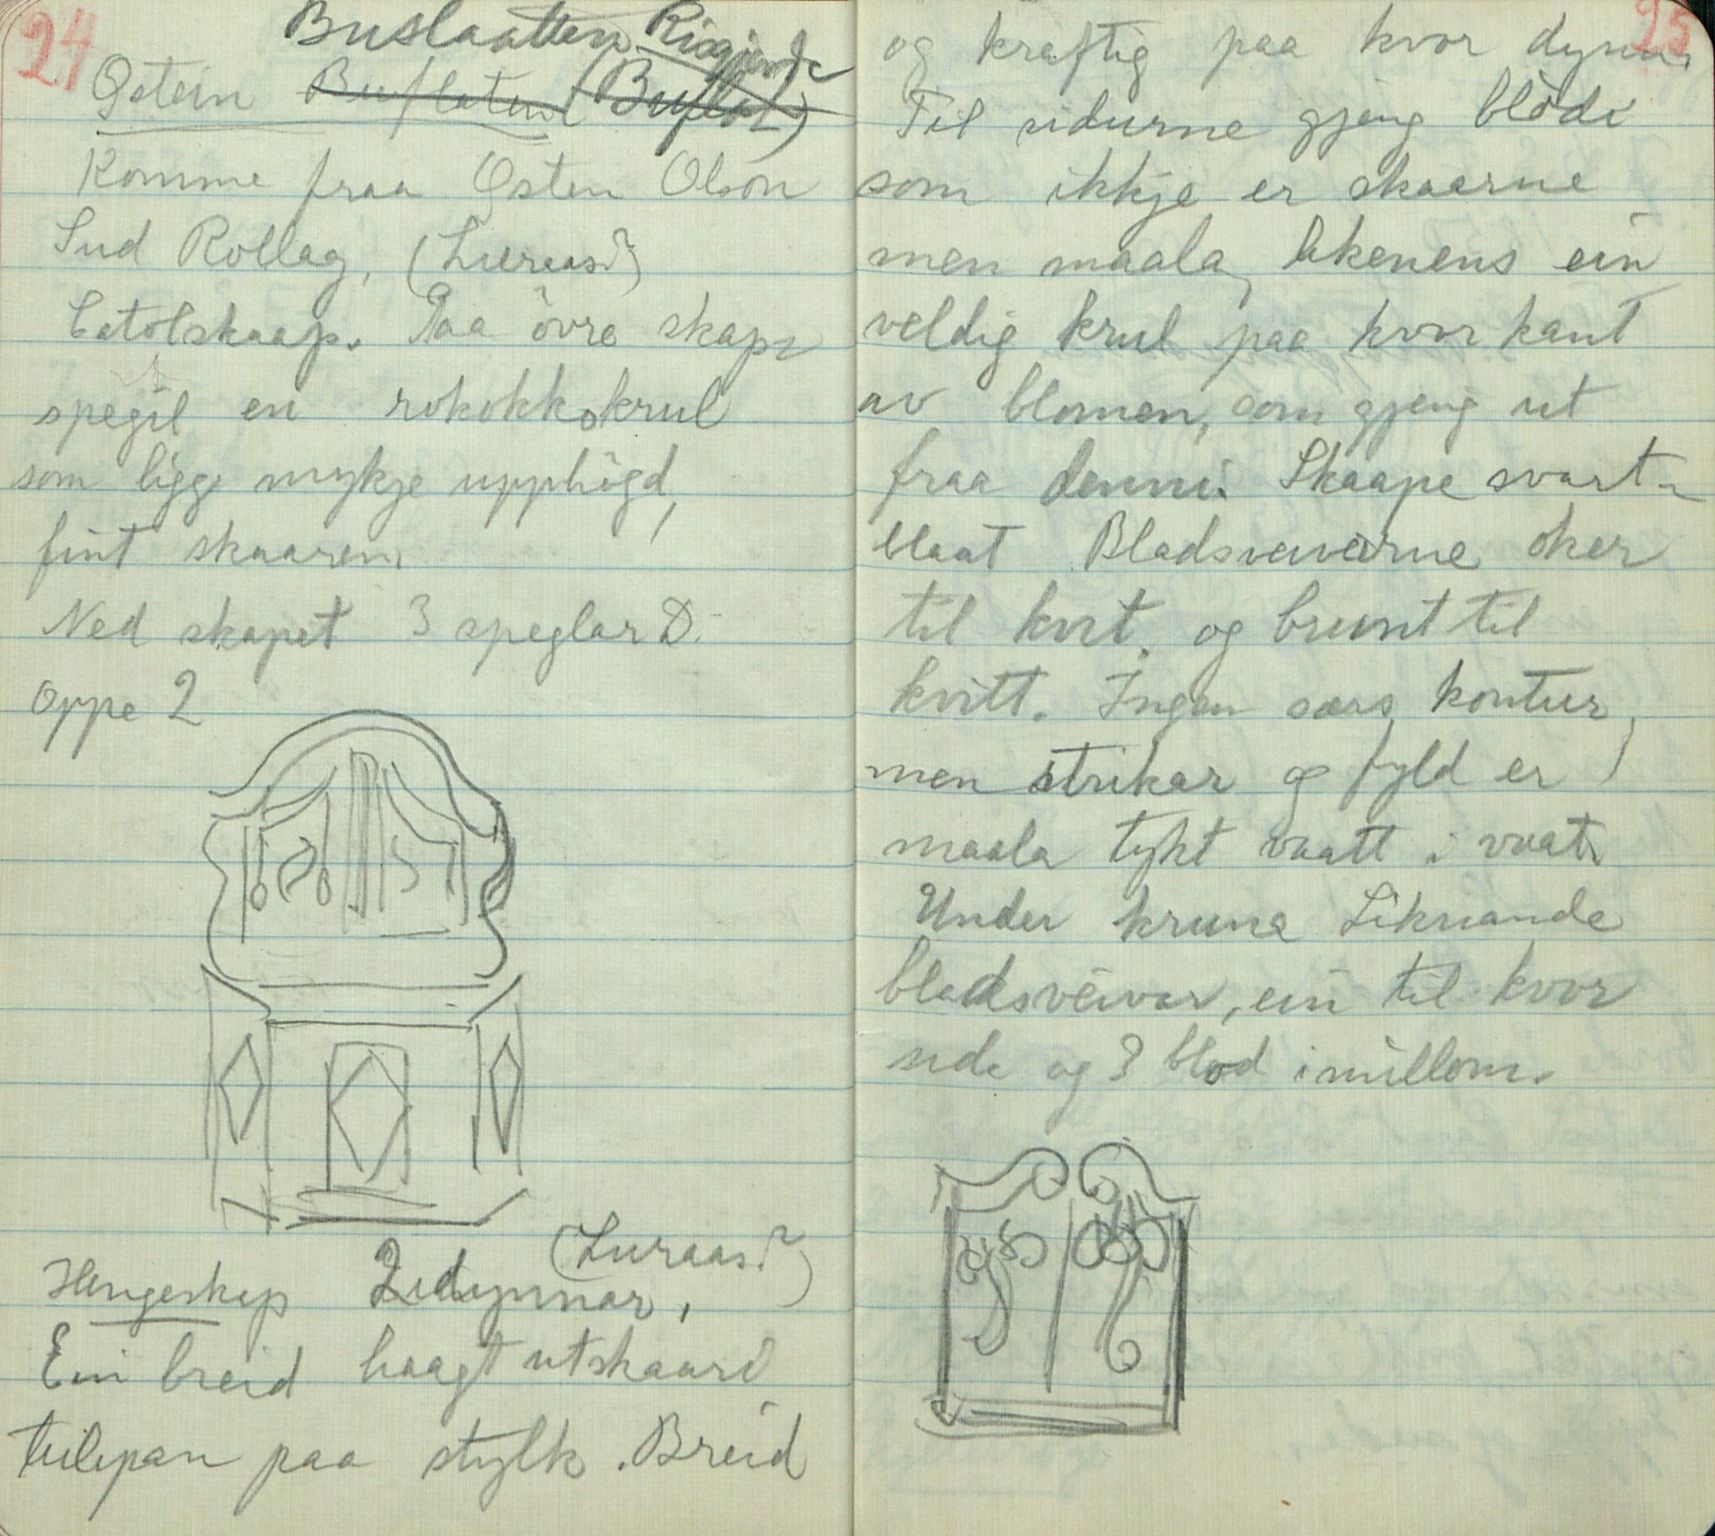 24
Buslaatten Risgjerde
Östein Buflaten (Buflat)
Komme fraa Östen Olson
Sud Rollag, (Luraas?)
Catolskaap. Paa övre skaps
spegil en rokokkokrul
som ligg mykje upphögd,
fint skaaren.
Ned skapet 3 speglar D.
Oppe 2
(Luraas?)
Hengeskap 2 dynnar,
Ein breid haagt utskaari
tulipan paa stylk. Breid
25
og kraftig paa kvor dynn.
Til sidurne gjeng blödi
som ikkje er skaarne
men maala, likenens ein
veldig krul paa kvor kant
av blomen, som gjeng ut
fraa denni. Skaape svart-
blaat Bladsveivarne oker
til kvit. og brunt til
kvitt. Ingen særs kontur,
men strikar og fyld er
maala tykt vaatt i vaat.
Under kruna Liknande
bladsveivar, ein til kvor
side og 3 blod imillom.